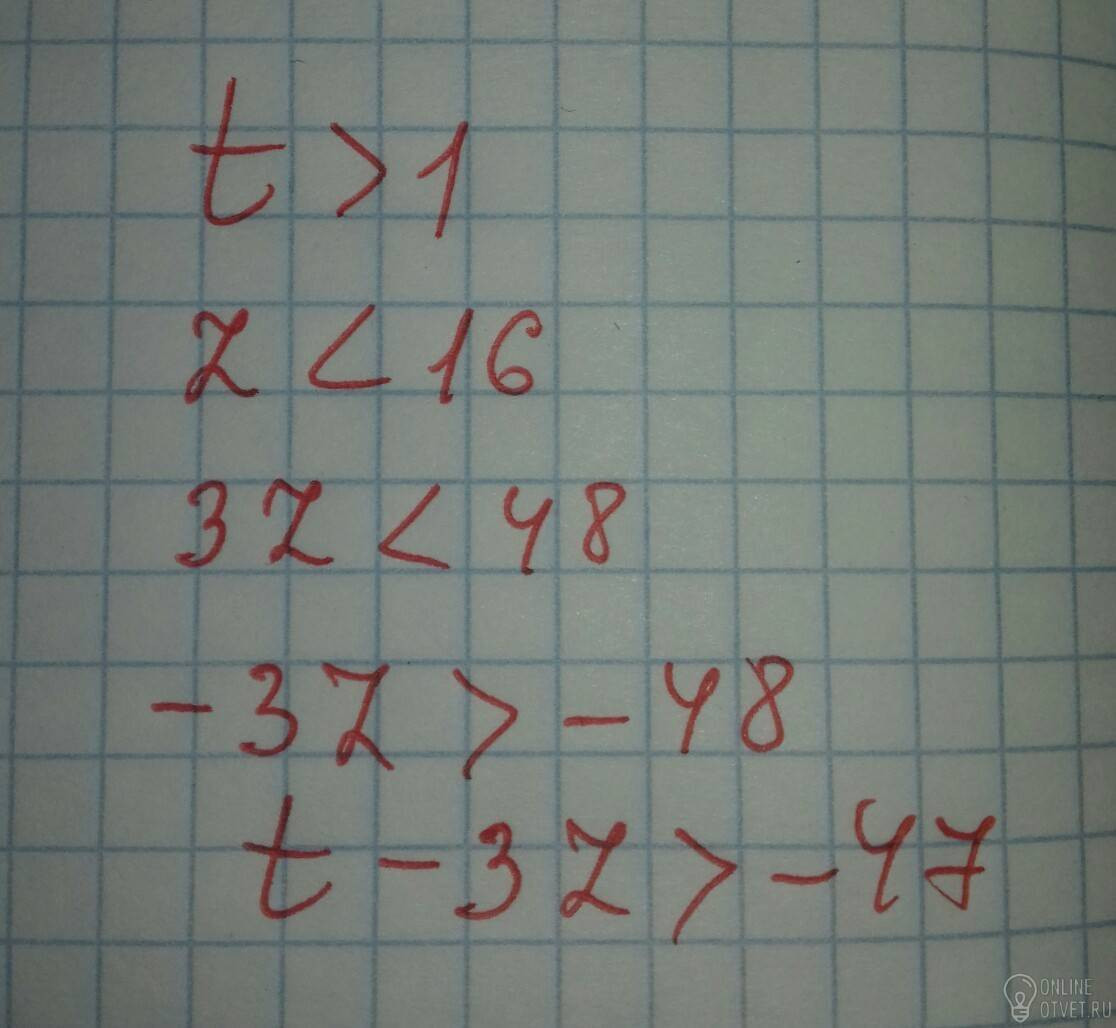 t > 1
z < 16
3z < 48
-3z > -48
t - 3z > -47
ONLINE
OTVET.RU